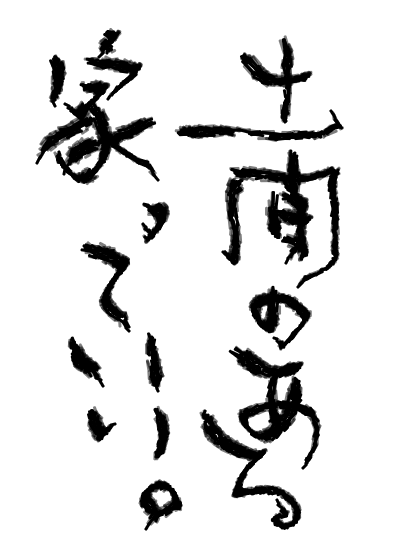 土間のある
家っていい。